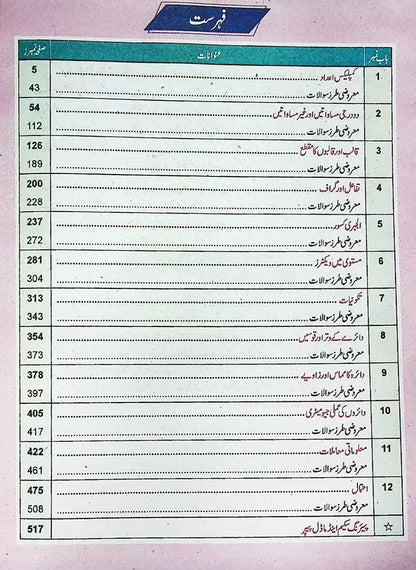 فہرست
باب نمبر عنوانات صفحہ نمبرز
1 کمپلیکس اعداد 5
معروضی طرز سوالات 43
2 دو درجی مساواتیں اور غیر مساواتیں 54
معروضی طرز سوالات 112
3 قالب اور قالبوں کا مقطع 126
معروضی طرز سوالات 189
4 تفاعل اور گراف 200
معروضی طرز سوالات 228
5 الجبری کسور 237
معروضی طرز سوالات 272
6 مستوی میں ویکٹرز 281
معروضی طرز سوالات 304
7 تکونیات 313
معروضی طرز سوالات 343
8 دائرے کے وتر اور قوسیں 354
معروضی طرز سوالات 373
9 دائرہ کا مماس اور زاویے 378
معروضی طرز سوالات 397
10 دائروں کی عملی جیومیٹری 405
معروضی طرز سوالات 417
11 معلوماتی معاملات 422
معروضی طرز سوالات 461
12 احتمال 475
معروضی طرز سوالات 508
☆ پیئرنگ سکیم اینڈ ماڈل پیپر 517